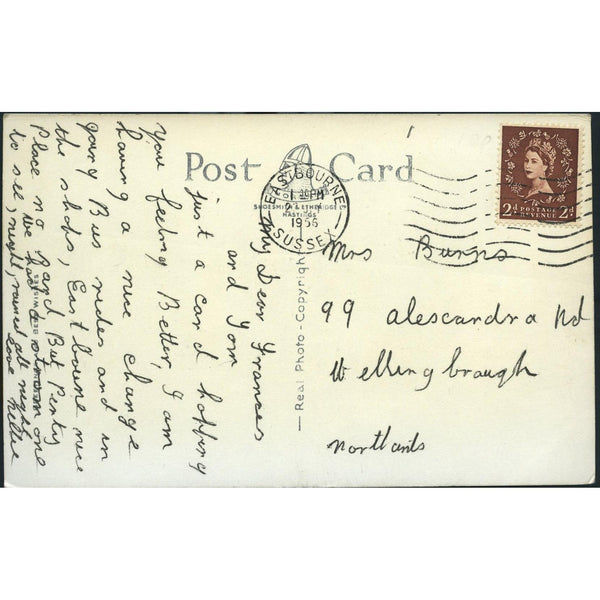 Post Card
SHOESMITH & ETHERIDGE LTD
HASTINGS
EASTBOURNE
PM
1956
SUSSEX
2d POSTAGE REVENUE 2d
— Real Photo - Copyright —
BEST WISHES
My Dear Frances
and Tom
just a card hopping
you feeling Better, I am
having a nice change
going Bus rides and in
the shops, East bourne nice
Place no sand But Penty
to see, we had a storm one
night, rained all night
love Nellie
Mrs Burns
99 alescandra Rd
Wellingbraugh
northants